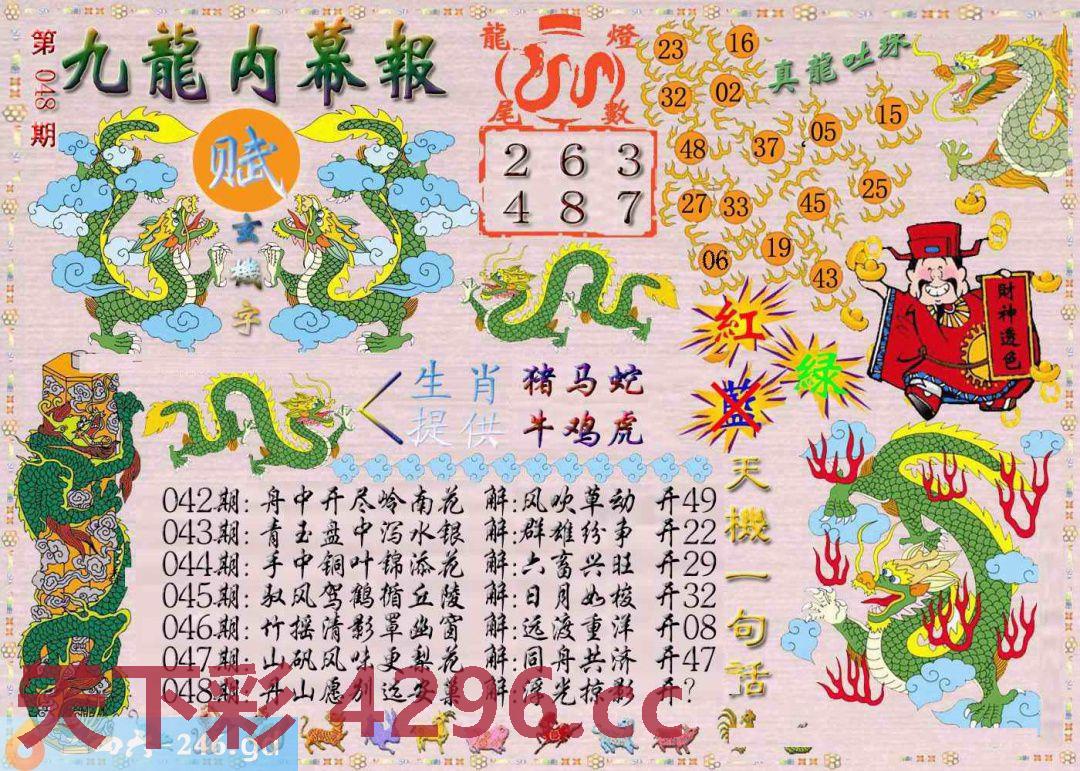 第048期
九龍内幕報
赋
玄機字
龍燈
尾數
2 6 3
4 8 7
23 16
32 02
48 37 05 15
27 33 45 25
06 19 43
真龍吐珠
財神透色
紅
綠
藍
生肖 猪马蛇
提供 牛鸡虎
天機一句話
042期:舟中开尽岭南花 解:风吹草动 开49
043期:青玉盘中泻水银 解:群雄纷争 开22
044期:手中铜叶锦添花 解:六畜兴旺 开29
045期:驭风驾鹤循丘陵 解:日月如梭 开32
046期:竹摇清影罩幽窗 解:远渡重洋 开08
047期:山矾风味更梨花 解:同舟共济 开47
048期:丹山愿别远安巢 解:浮光掠影 开?
天下彩 4296.cc
=246.gd